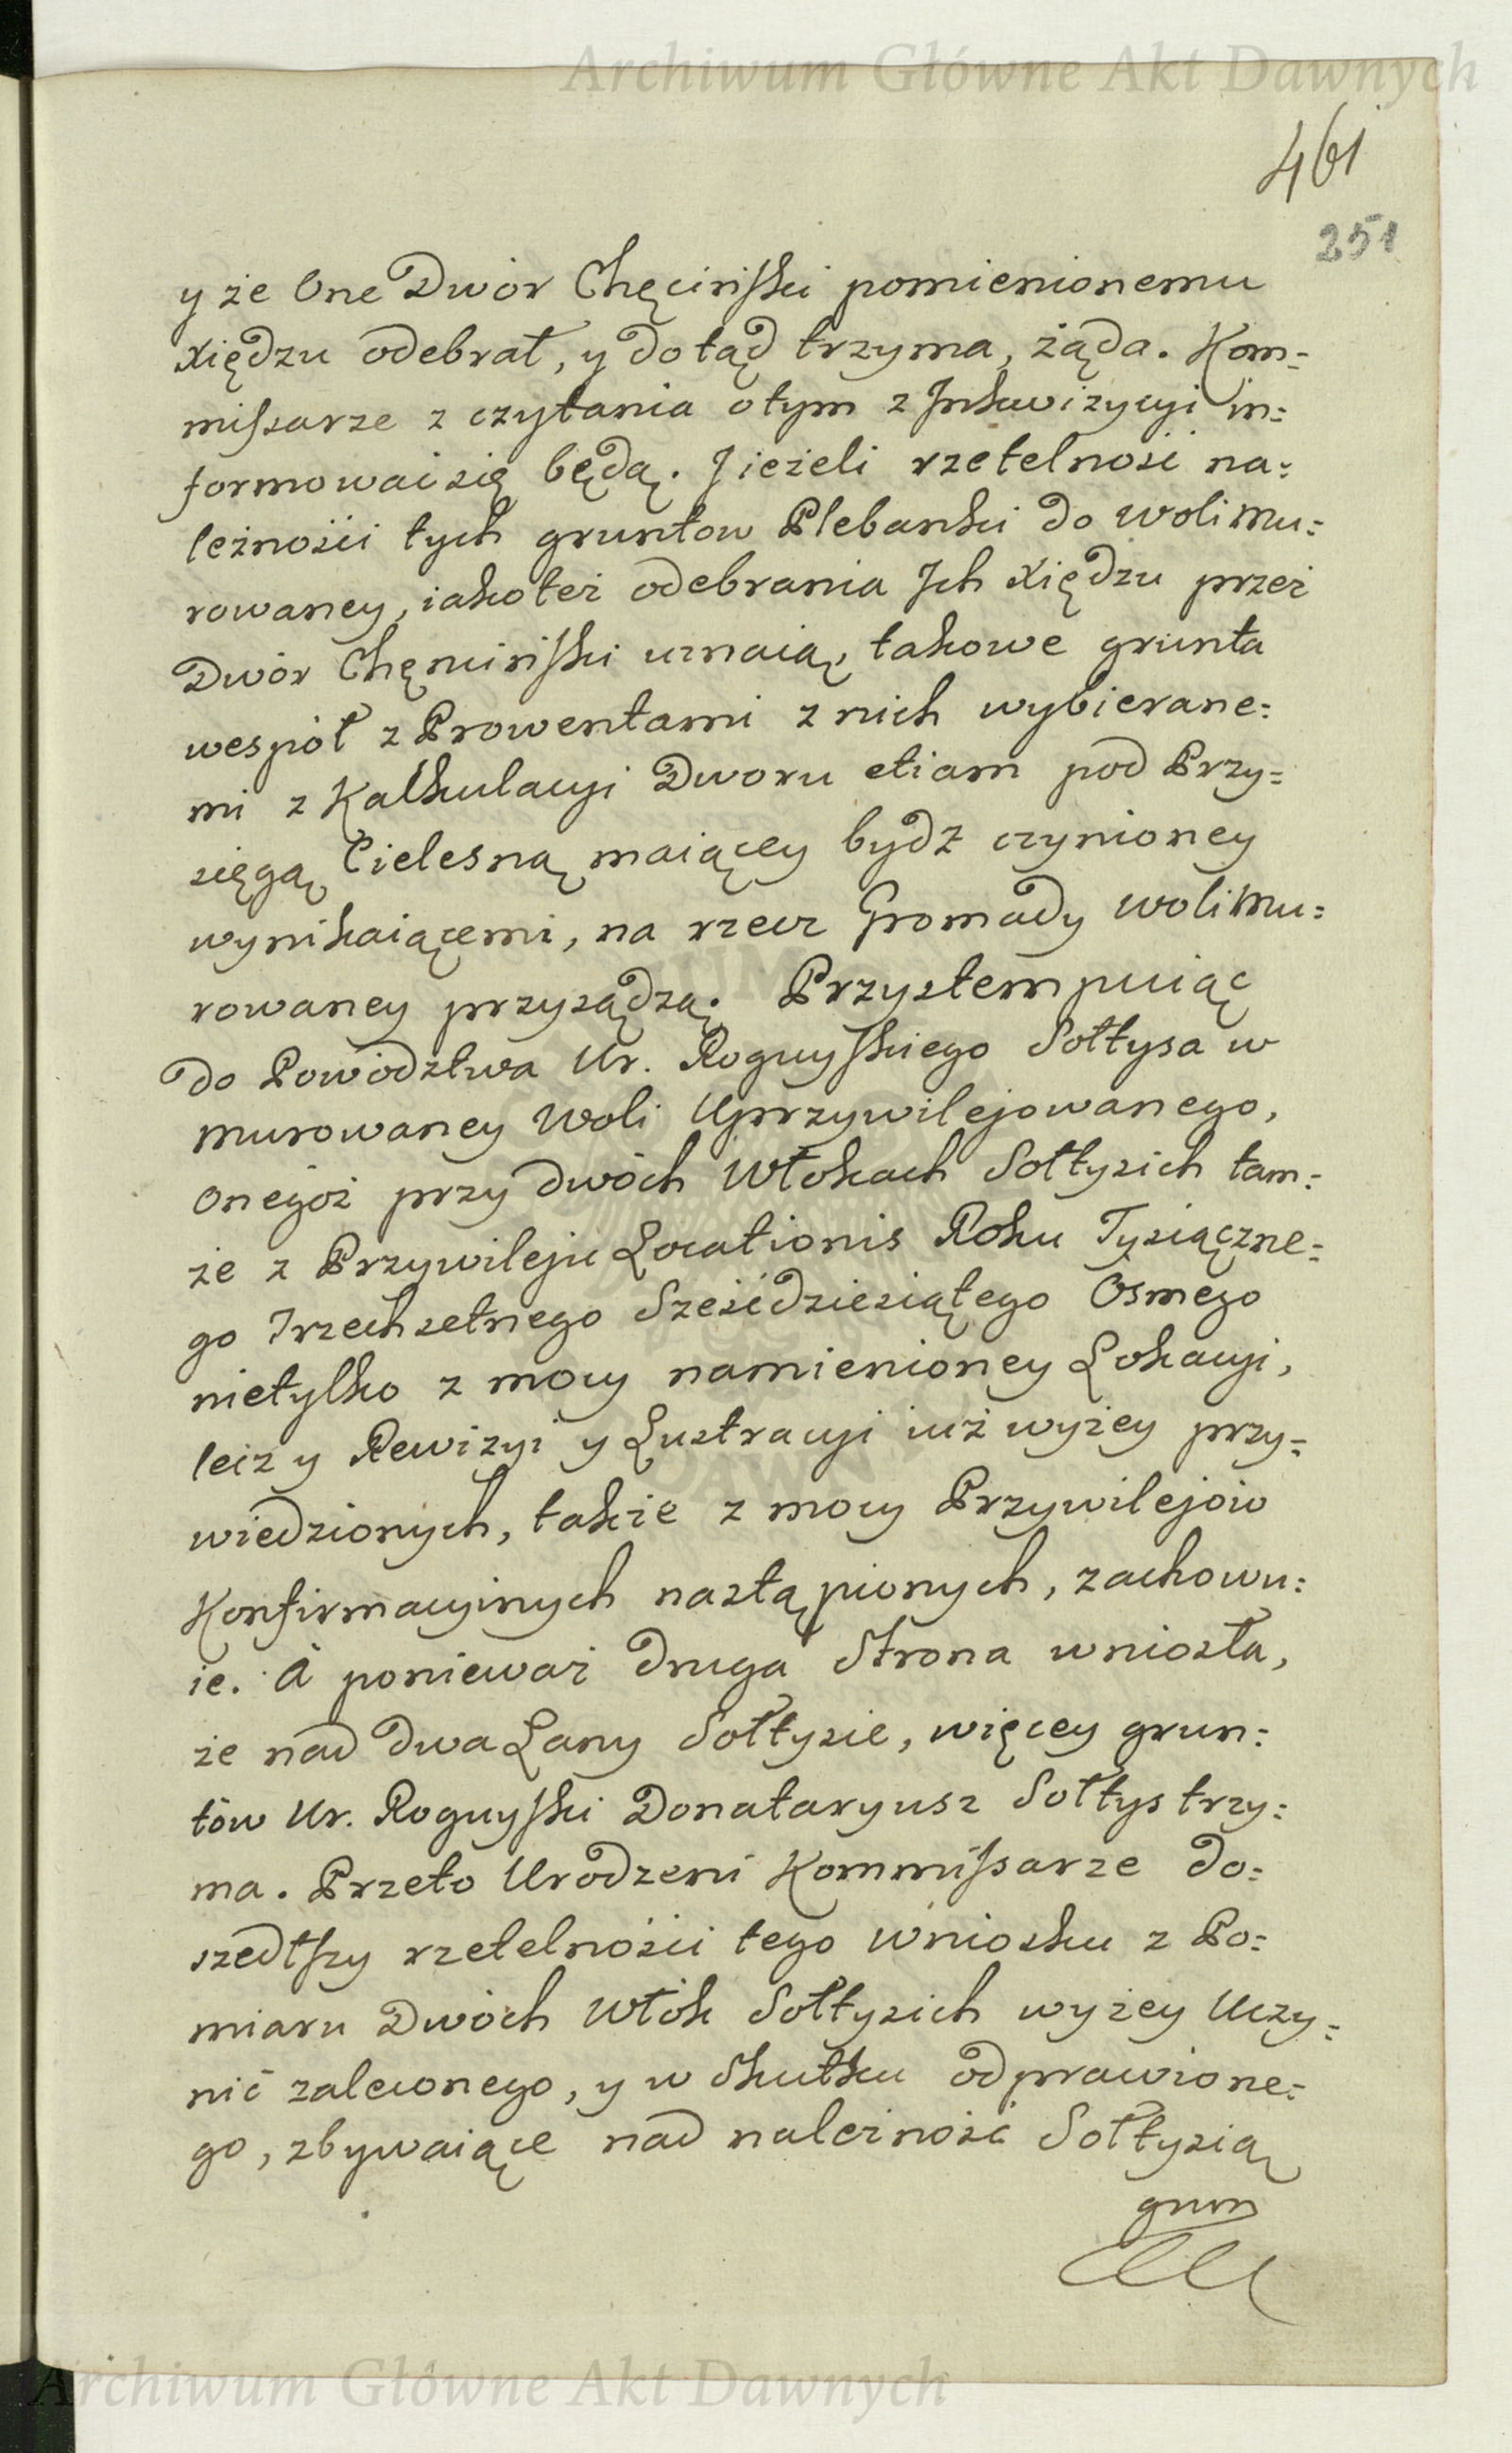 Archiwum Główne Akt Dawnych
461
251
y że One Dwór Chęcińſki pomienionemu
Xiędzu odebrał, y dotąd trzyma, żąda. Kom=
miſsarze z czytania otym z Jnkwizycyi in=
formować się będą. J ieżeli rzetelność na=
leżności tych gruntow Plebanki do Woli Mu=
rowaney, iakoteż odebrania Jch Xiędzu przez
Dwór Chęncińſki uznaią, takowe grunta
wespół z Prowentami z nich wybierane=
mi z Kalkulacyi Dworu etiam pod Przy=
sięgą Cielesną maiącey bydź czynioney
wynikaiącemi, na rzecz Gromady Woli Mu=
rowaney przysądzą. Przystempuiąc
do Powództwa Ur. Roguyſkiego Sołtysa w
Murowaney Woli Uprzywilejowanego,
Onegoż przy dwóch Włokach Sołtysich tam=
że z Przywileju Locationis Roku Tysiączne=
go Trzechsetnego Sześćdziesiątego Osmego
nietylko z mocy namienioney Lokacyi,
lecz y Rewizyi y Lustracyi iuż wyżey przy=
wiedzionych, także z mocy Przywilejów
Konfirmacyinych nastąpionych, zachowu=
ie. A ponieważ druga Strona wniosła,
że nad dwa Łany Sołtysie, więcey grun=
tów Ur. Roguyſki Donataryusz Sołtys trzy=
ma. Przeto Urodzeni Kommiſsarze do=
szedłſzy rzetelności tego wniosku z Po=
miaru Dwóch Włók Sołtysich wyżey Uczy=
nić zaleconego, y w Skutku odprawione=
go, zbywaiące nad należność Sołtysią
grun
Archiwum Główne Akt Dawnych